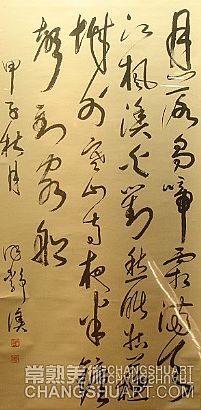 月落烏啼霜滿天
江楓漁火對愁眠姑蘇
城外寒山寺夜半鐘
聲到客船
甲子秋月
常熟美术
CHANGSHUART
CHANGSHUART.COM